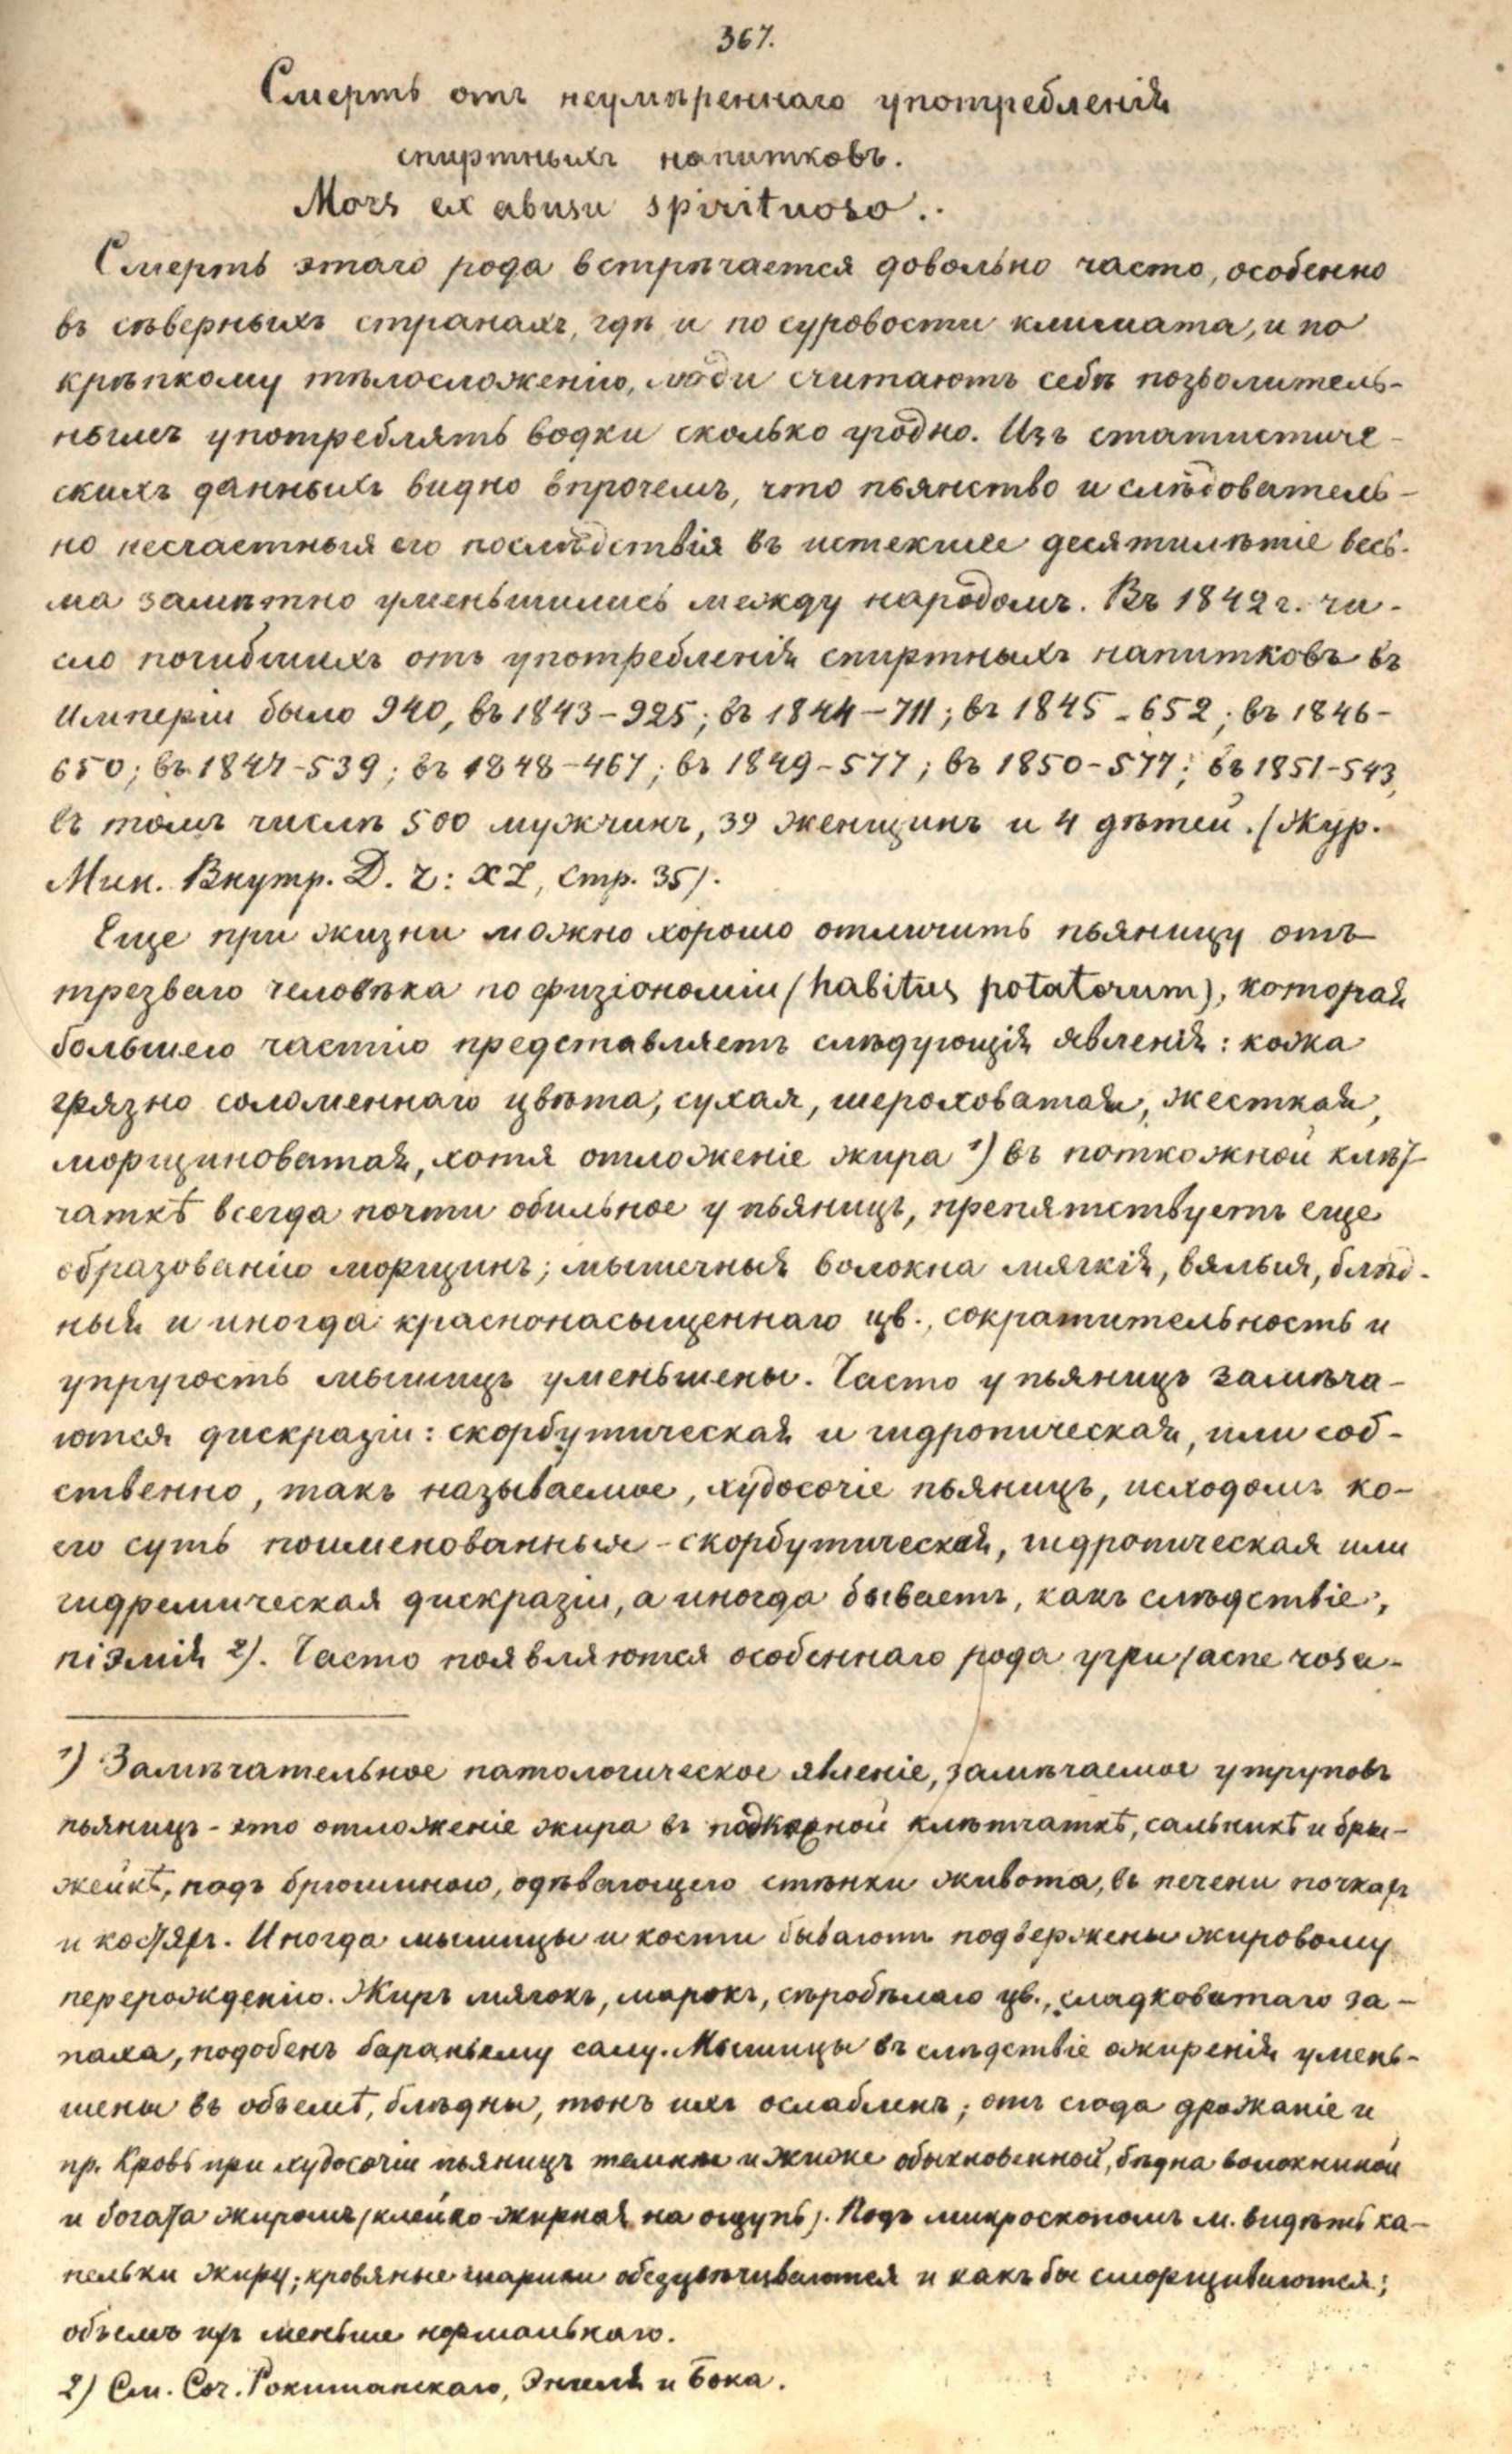 367.
Смерть отъ неумѣреннаго употребленія
спиртныхъ напитковъ.
Mors ex abusu spirituoso..
Смерть этаго рода встрѣчается довольно часто, особенно
въ сѣверныхъ странахъ, гдѣ и по суровости климата, и по
крѣпкому тѣлосложенію, люди считаютъ себѣ позволитель-
нымъ употреблять водки сколько угодно. Изъ статистиче-
скихъ данныхъ видно впрочемъ, что пьянство и слѣдователь-
но несчастныя его послѣдствія въ истекшее десятилѣтіе весь-
ма замѣтно уменьшились между народомъ. Въ 1842 г. чи-
сло погибшихъ отъ употребленія спиртныхъ напитковъ въ
Имперіи было 940, въ 1843-925; въ 1844-711; въ 1845-652; въ 1846-
650; въ 1847-539; въ 1848-467; въ 1849-577; въ 1850-577; въ 1851-543,
въ томъ числѣ 500 мужчинъ, 39 женщинъ и 4 дѣтей. (Жур.
Мин. Внутр. Д. Ч: XL, стр. 35).
Еще при жизни можно хорошо отличить пьяницу отъ
трезваго человѣка по физіономіи (habitus potatorum), которая
большею частію представляетъ слѣдующія явленія: кожа
грязно соломеннаго цвѣта, сухая, шероховатая, жесткая,
морщиноватая, хотя отложеніе жира 1) въ поткожной клѣт-
чаткѣ всегда почти обильное у пьяницъ, препятствуетъ еще
образованію морщинъ; мышечныя волокна мягкія, вялыя, блѣд-
ныя и иногда краснонасыщеннаго цв., сократительность и
упругость мышицъ уменьшены. Часто у пьяницъ замѣча-
ются дискразіи: скорбутическая и гидропическая, или соб-
ственно, такъ называемое, худосочіе пьяницъ, исходомъ ко-
его суть поименованныя - скорбутическая, гидропическая или
гидремическая дискразіи, а иногда бываетъ, какъ слѣдствіе,
піэмія 2). Часто появляются особеннаго рода угри (acne rosa-
1) Замѣчательное патологическое явленіе, замѣчаемое у труповъ
пьяницъ - это отложеніе жира въ подкожной клѣтчаткѣ, сальникѣ и бры-
жейкѣ, подъ брюшиною, одѣвающею стѣнки живота, въ печени почкахъ
и костяхъ. Иногда мышицы и кости бываютъ подвержены жировому
перерожденію. Жиръ мягокъ, марокъ, сѣробѣлаго цв., сладковатаго за-
паха, подобенъ бараньему салу. Мышицы въ слѣдствіе ожиренія умень-
шены въ объемѣ, блѣдны, тонъ ихъ ослабленъ; отъ сюда дрожаніе и
пр. Кровь при худосочіи пьяницъ темнѣе и жиже обыкновенной, бѣдна волокниной
и богата жиромъ (клейко-жирная на ощупь). Подъ микроскопомъ м. видѣть ка-
пельки жиру; кровяные шарики обезцвѣчиваются и какъ бы сморщиваются;
объемъ ихъ меньше нормальнаго.
2) См. Соч. Рокитанскаго, Энгеля и Бока.